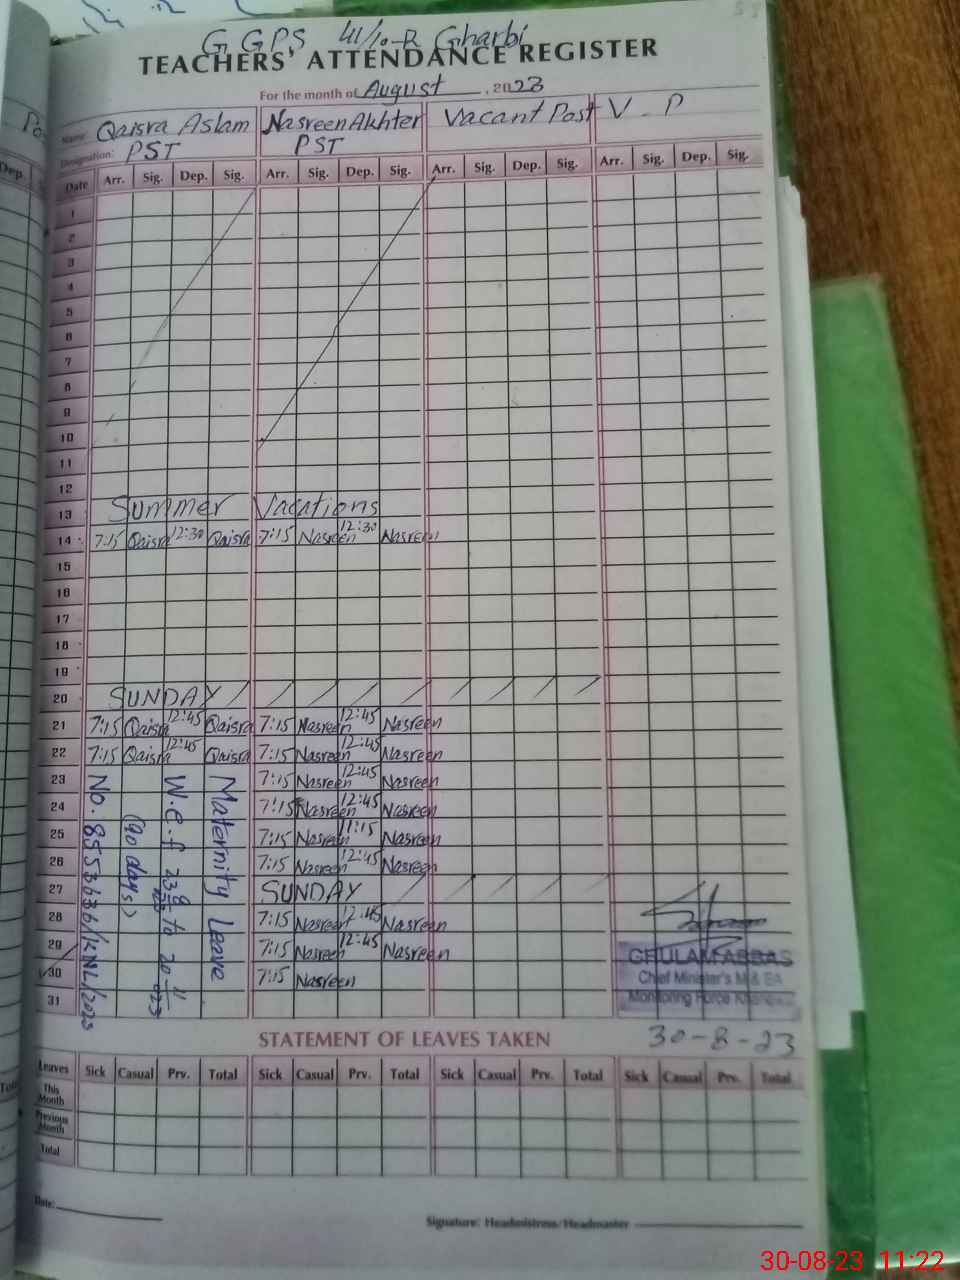 G G P S 41/10-R Gharbi
TEACHERS' ATTENDANCE REGISTER
For the month of August, 2023
Name: Qaisra Aslam Nasreen Akhter Vacant Post V - P
Designation: PST PST
Date Arr. Sig. Dep. Sig. Arr. Sig. Dep. Sig. Arr. Sig. Dep. Sig. Arr. Sig. Dep. Sig.
1
2
3
4
5
6
7
8
9
10
11
12
13 Summer Vacations
14 7:15 Qaisra 12:30 Qaisra 7:15 Nasreen 12:30 Nasreen
15
16
17
18
19
20 SUNDAY
21 7:15 Qaisra 12:45 Qaisra 7:15 Nasreen 12:45 Nasreen
22 7:15 Qaisra 12:45 Qaisra 7:15 Nasreen 12:45 Nasreen
23 7:15 Nasreen 12:45 Nasreen
24 7:15 Nasreen 12:45 Nasreen
25 7:15 Nasreen 11:15 Nasreen
26 7:15 Nasreen 12:45 Nasreen
27 SUNDAY
28 7:15 Nasreen 12:45 Nasreen
29 7:15 Nasreen 12:45 Nasreen
30 7:15 Nasreen
31
Maternity Leave
W.e.f 23/8 to 20/11
(90 days)
No. 8553636/KNL/2023
GHULAM ABBAS
Chief Minister's M & EA
Monitoring Force
30-8-23
STATEMENT OF LEAVES TAKEN
Leaves Sick Casual Prv. Total Sick Casual Prv. Total Sick Casual Prv. Total Sick Casual Prv. Total
This Month
Previous Month
Total
Date:
Signature: Headmistress/Headmaster
30-08-23 11:22